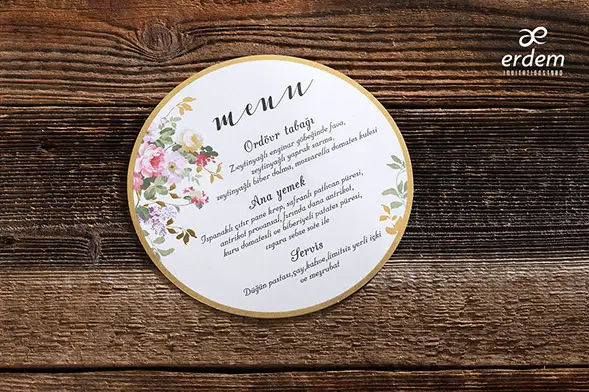 erdem
INVITATIONCARD
menu
Ordövr tabağı
Zeytinyağlı enginar göbeğinde fava,
zeytinyağlı yaprak sarma,
zeytinyağlı biber dolma, mozzarella domates kulesi
Ana yemek
Ispanaklı çıtır pane krep, safranlı patlıcan püresi,
antrikot provansal, fırında dana antrikot,
kuru domatesli ve biberiyeli patates püresi,
ızgara sebze sote ile
Servis
Düğün pastası,çay,kahve,limitsiz yerli içki
ve meşrubat